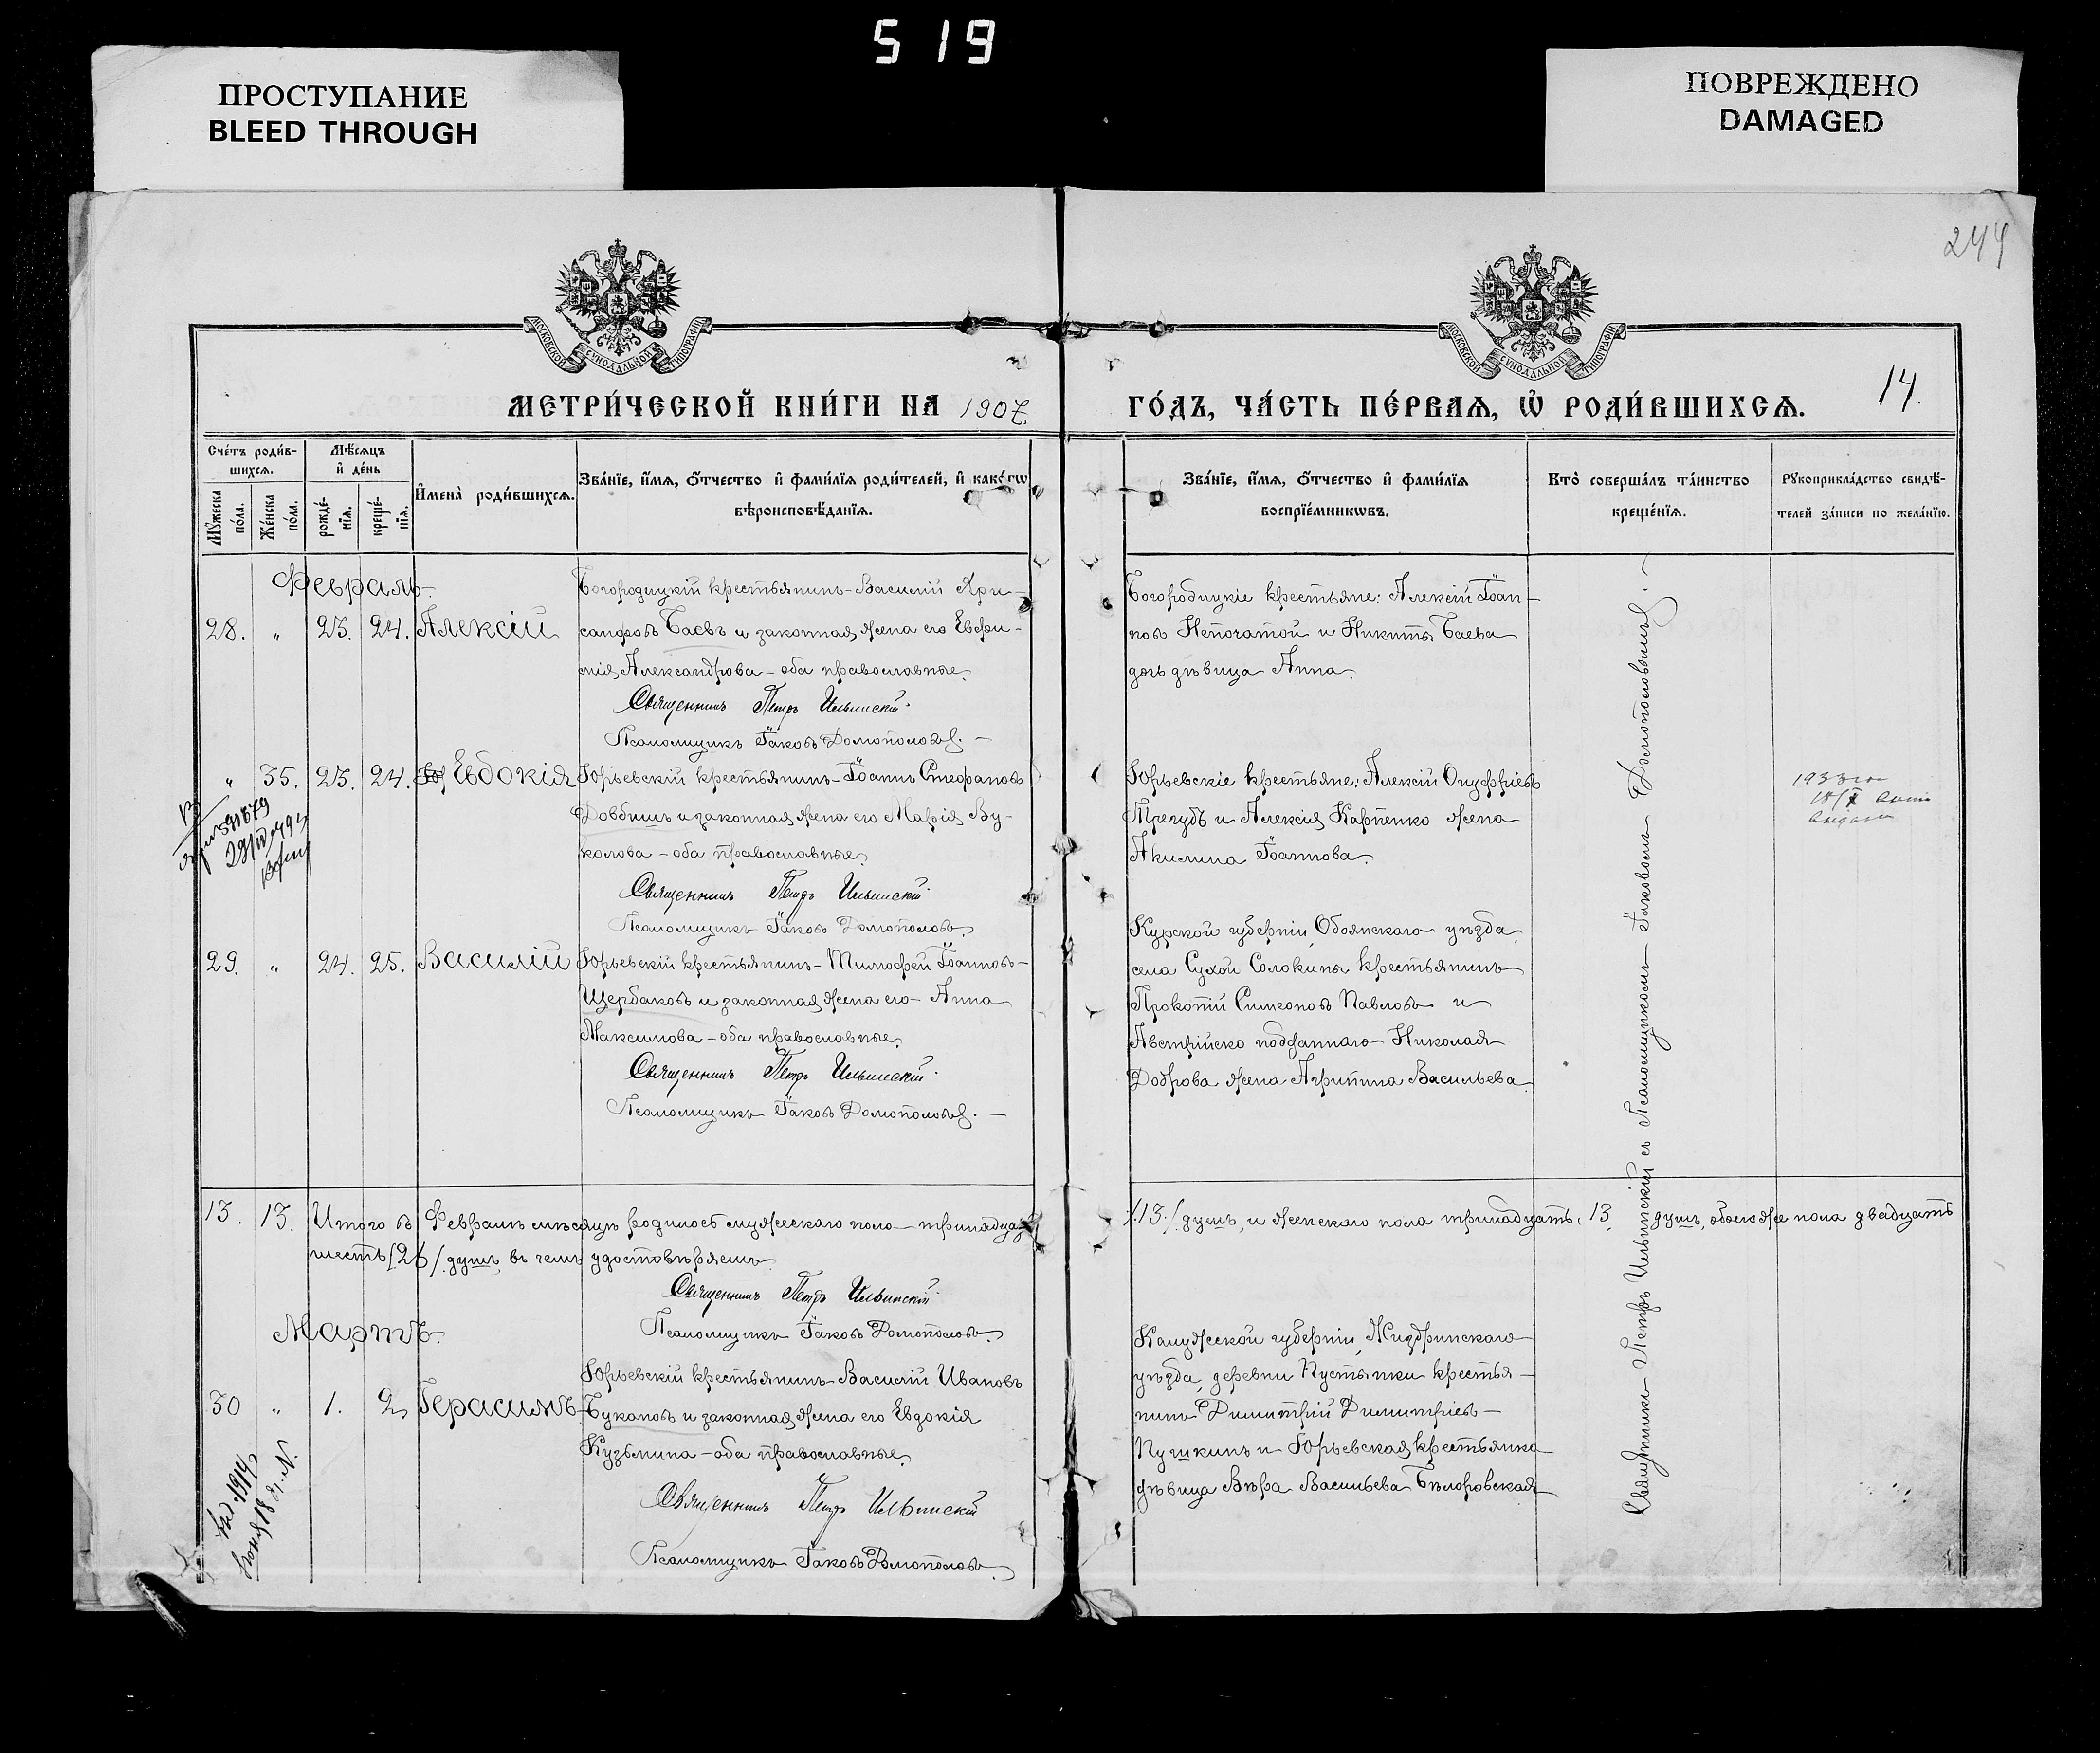 519
ПРОСТУПАНИЕ
BLEED THROUGH
ПОВРЕЖДЕНО
DAMAGED
244
МОСКОВСКОЙ СУНОДАЛЬНОЙ ТИПОГРАФІИ
МОСКОВСКОЙ СУНОДАЛЬНОЙ ТИПОГРАФІИ
МЕТРИ́ЧЕСКОЙ КНИ́ГИ НА 1907
ГО́ДЪ, ЧА́СТЬ ПЕ́РВАѦ, Ѡ҆ РОДИ́ВШИХСѦ.
14.
Сче́тъ роди́в-
шихсѧ.
Мѣ́сѧцъ
и҆ де́нь
Мꙋ́жеска
по́ла.
Же́нска
по́ла.
рожде́-
нїѧ.
креще́-
нїѧ.
И҆мена̀ роди́вшихсѧ.
Зва́нїе, и҆́мѧ, о҆́тчество и҆ фами́лїѧ роди́телей, и҆ како́гѡ
вѣроисповѣ́данїѧ.
Зва́нїе, и҆́мѧ, о҆́тчество и҆ фами́лїѧ
воспрїе́мникѡвъ.
Кто̀ соверша́лъ та́инство
креще́нїѧ.
Рꙋкоприкла́дство свидѣ́-
телей за́писи по жела́нїю.
Февраль.
28. „ 23. 24. Алексій
Богородицкій крестьянинъ - Василій Хри-
санфовъ Баевъ и законная жена его Евфи-
мія Александрова - оба православные.
Священникъ Петръ Ильинскій.
Псаломщикъ Іаковъ Домополовъ. -
Богородицкіе крестьяне: Алексій Іоан-
новъ Непочатой и Никиты Баева
дочь дѣвица Анна.
„ 35. 23. 24. Евдокія
Юрьевскій крестьянинъ - Іоаннъ Стефановъ
Довбишъ и законная жена его Марія Ву-
колова - оба православные.
Священникъ Петръ Ильинскій.
Псаломщикъ Іаковъ Домополовъ.
Юрьевскіе крестьяне: Алексій Онуфріевъ
Трегубъ и Алексія Карпенко жена
Акилина Іоаннова.
29. „ 24. 25. Василій
Юрьевскій крестьянинъ - Тимофей Іоанновъ -
Щербаковъ и законная жена его - Анна
Максимова - оба православные.
Священникъ Петръ Ильинскій.
Псаломщикъ Іаковъ Домополовъ. -
Курской губерніи, Обоянскаго уѣзда,
села Сухой Солотины крестьянинъ
Прокопій Симеоновъ Павловъ и
Австрійско подданнаго - Николая
Доброва жена Агрипина Васильева.
13. 13. Итого въ Февралѣ мѣсяцѣ родилось мужескаго пола - тринадцать
/.13./ душъ, и женскаго пола тринадцать, 13. душъ, обоего же пола двадцать
шесть /.26./ душъ, въ чемъ удостовѣряемъ
Священникъ Петръ Ильинскій.
Псаломщикъ Іаковъ Домополовъ.
Мартъ.
30 „ 1. 2. Герасимъ
Юрьевскій крестьянинъ Василій Ивановъ
Букановъ и законная жена его Евдокія
Кузьмина - оба православные.
Священникъ Петръ Ильинскій
Псаломщикъ Іаковъ Домополовъ.
Калужской губерніи, Жиздринскаго
уѣзда, деревни Пустынки крестья-
нинъ Димитрій Димитріевъ -
Пушкинъ и Юрьевская крестьянка
дѣвица Вѣра Васильева Бѣлоровская
Священникъ Петръ Ильинскій съ Псаломщикомъ Іаковомъ Домополовымъ. -